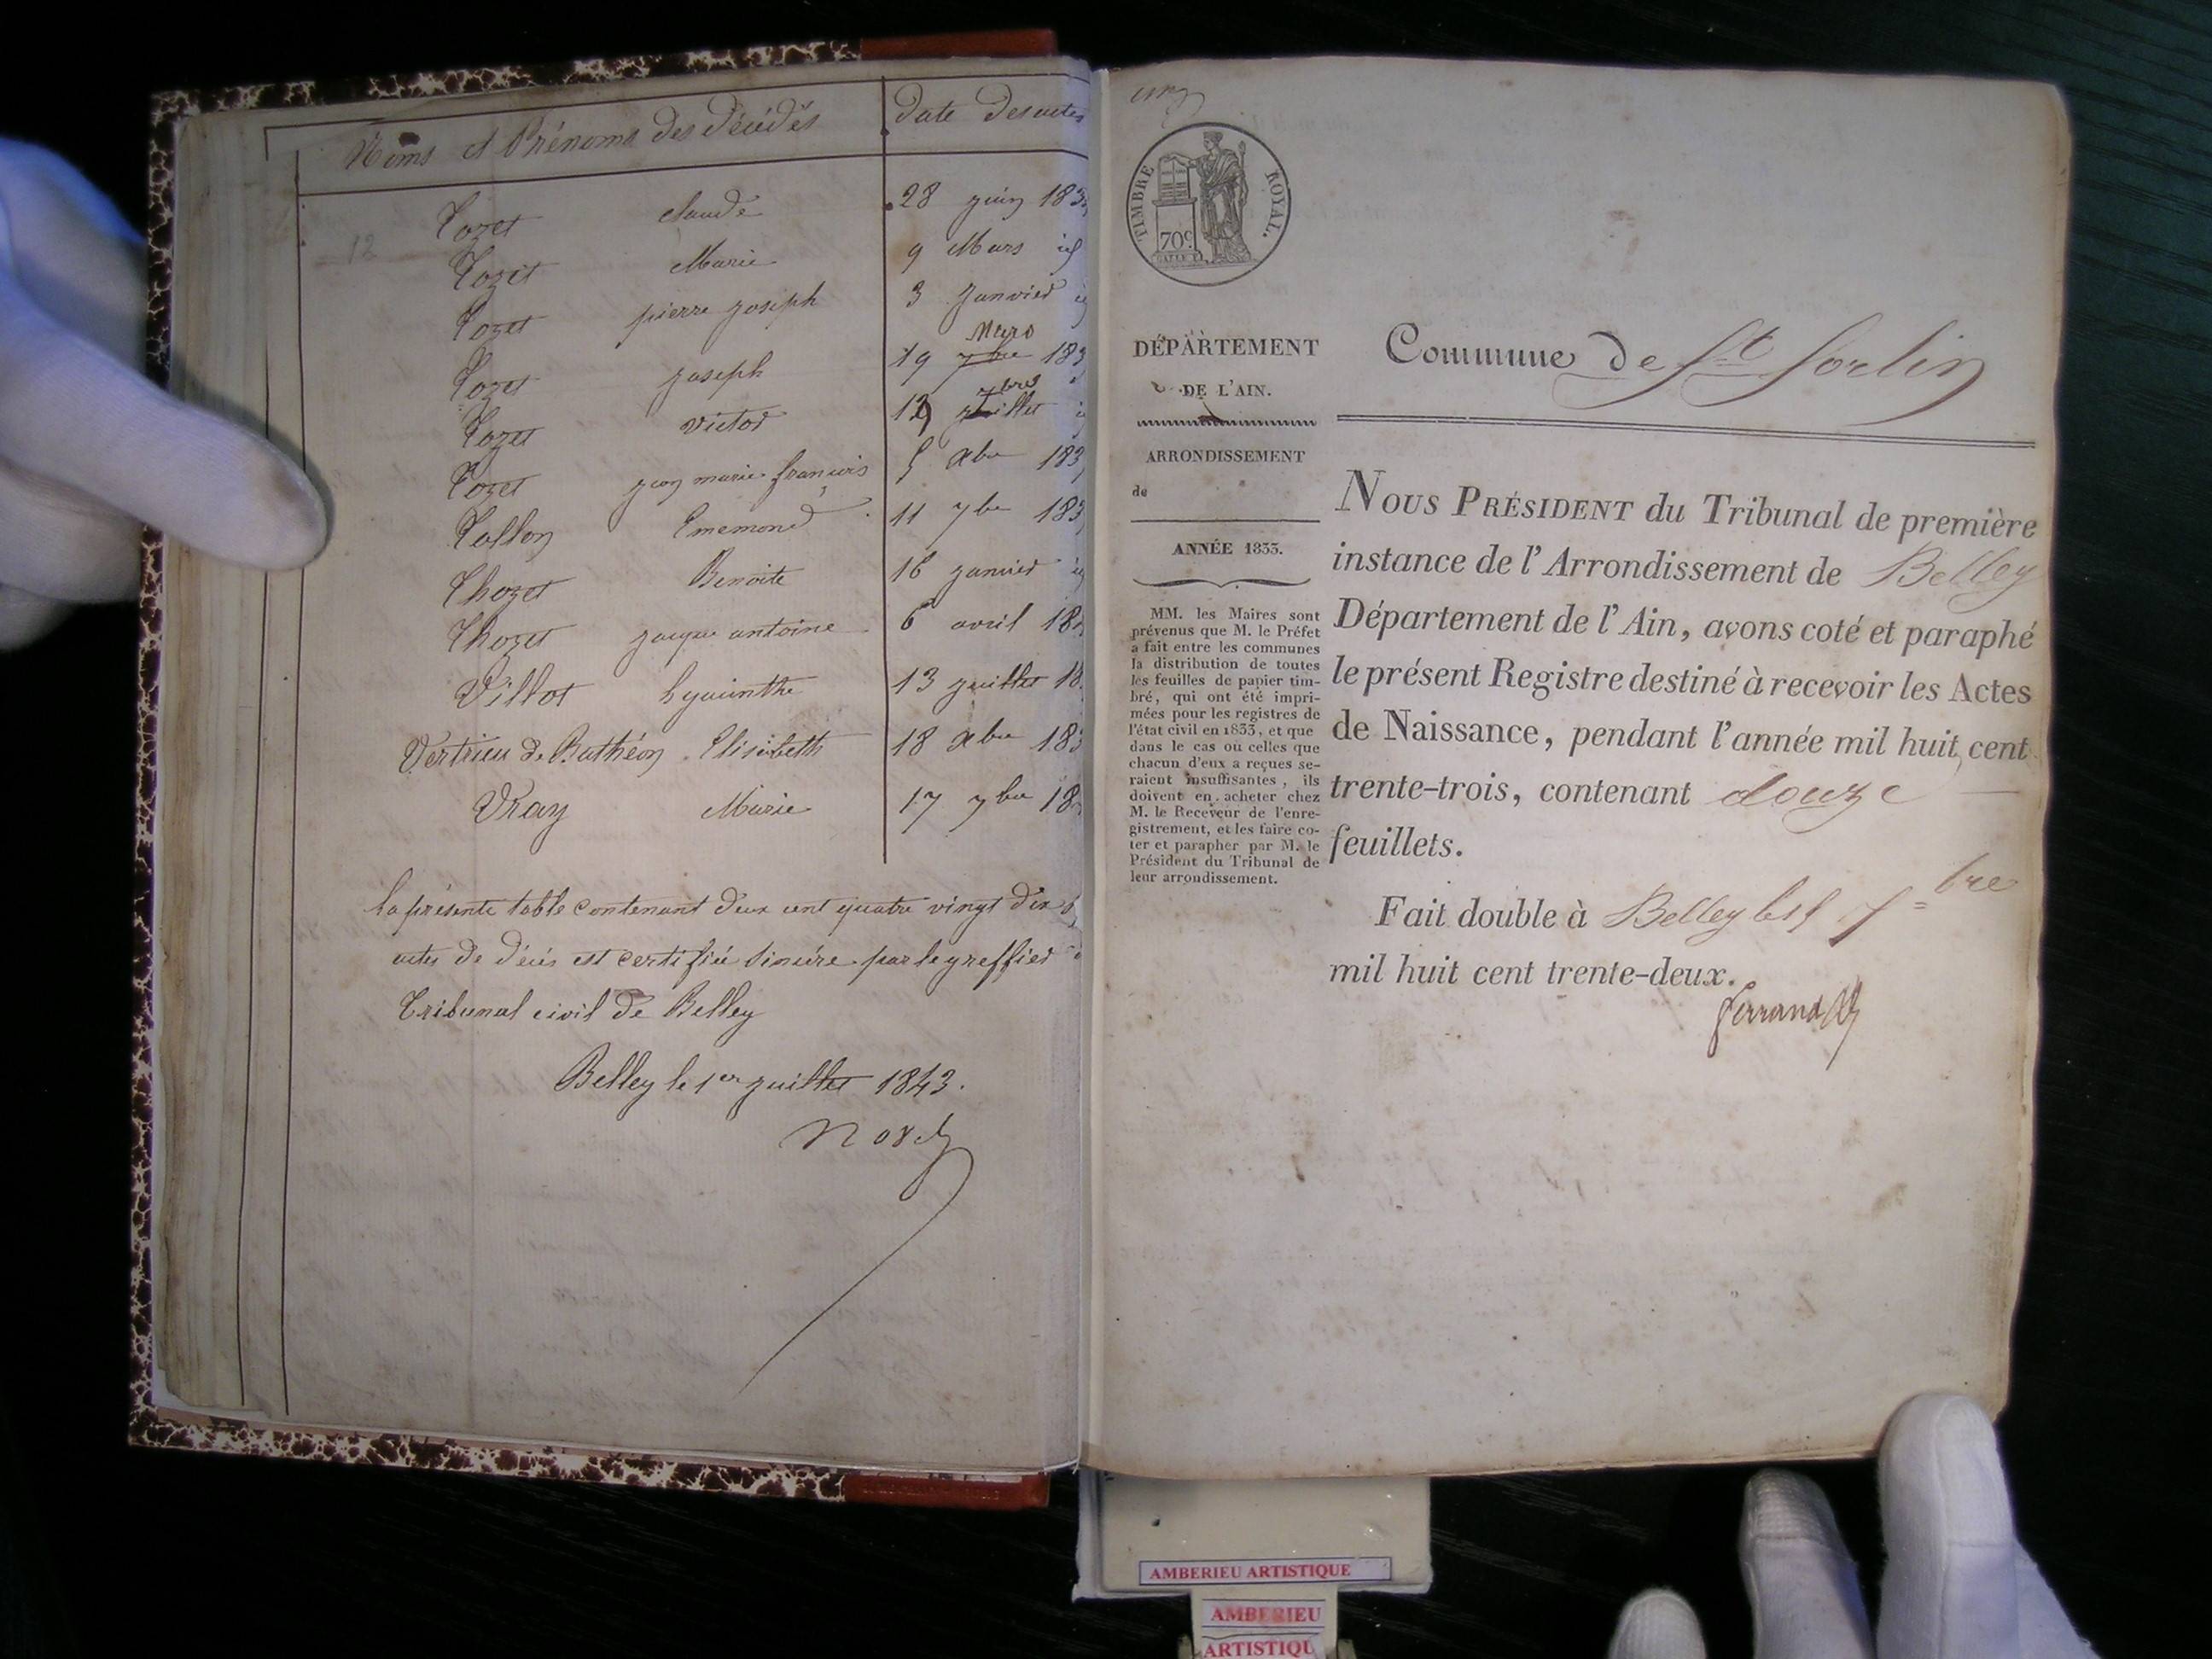 Noms et Prénoms des décédés
date des actes
Tozet claude 28 juin 183
Tozet Marie 9 Mars id
Tozet pierre joseph 3 Janvier
Mars
Tozet joseph 19 7bre 183
7bres
Tozet victor 12 juillet
Tozet jean marie françois 5 Xbre 183
Tallon Enemond 11 7bre 183
Thozet Benoite 16 janvier
Thozet jacque antoine 6 avril 18
Villot hyacinthe 13 juillet 18
Vertrieu de Bathéon Elisabeth 18 Xbre 183
Vray Marie 17 7bre 18
12
la présente table contenant deux cent quatre vingt dix
actes de décès est certifiée sincère par le greffier
Tribunal civil de Belley
Belley le 1er juillet 1843.
TIMBRE ROYAL.
70c
DÉPARTEMENT
DE L'AIN.
ARRONDISSEMENT
de
ANNÉE 1833.
MM. les Maires sont
prévenus que M. le Préfet
a fait entre les communes
la distribution de toutes
les feuilles de papier tim-
bré, qui ont été impri-
mées pour les registres de
l'état civil en 1833, et que
dans le cas où celles que
chacun d'eux a reçues se-
raient insuffisantes, ils
doivent en acheter chez
M. le Receveur de l'enre-
gistrement, et les faire co-
ter et parapher par M. le
Président du Tribunal de
leur arrondissement.
Commune de St Sorlin
NOUS PRÉSIDENT du Tribunal de première
instance de l'Arrondissement de Belley
Département de l'Ain, avons coté et paraphé
le présent Registre destiné à recevoir les Actes
de Naissance, pendant l'année mil huit cent
trente-trois, contenant douze
feuillets.
Fait double à Belley 7bre
mil huit cent trente-deux.
Ferrand
AMBERIEU ARTISTIQUE
AMBERIEU
ARTISTIQU